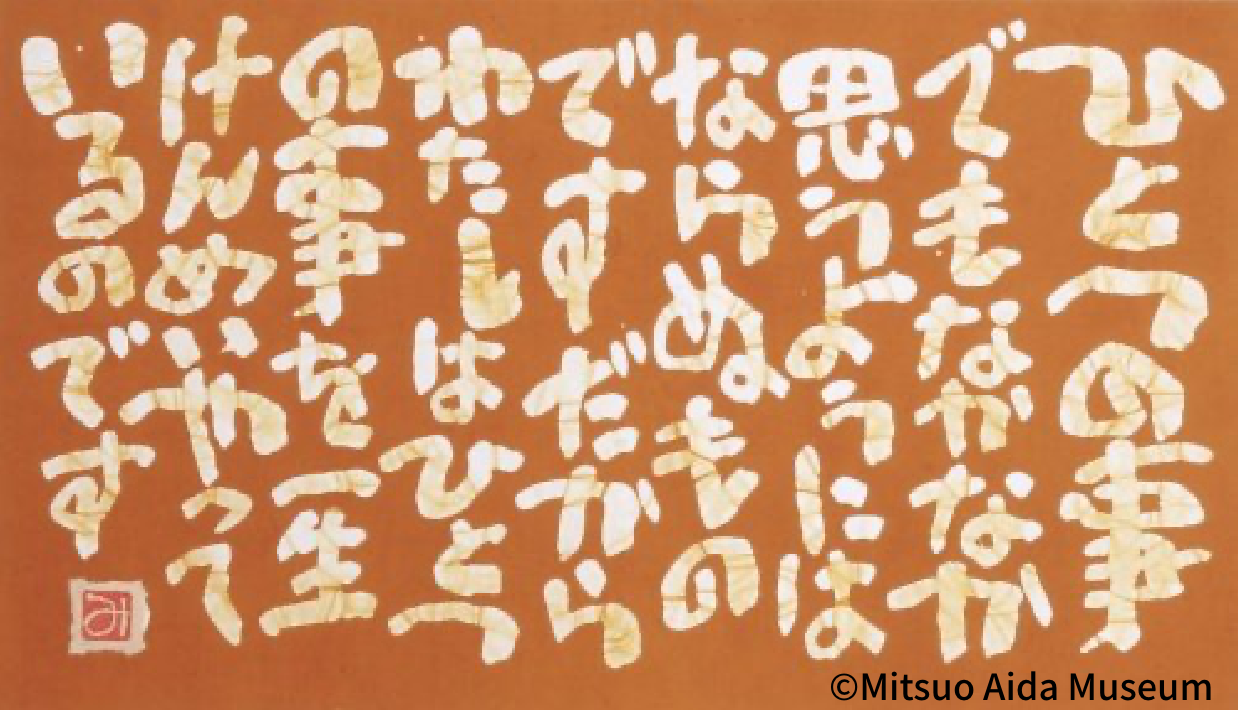 ひとつの事
でもなかなか
思うようには
ならぬもの
です だから
わたしはひとつ
の事を一生
けんめいやって
いるのです
み
©Mitsuo Aida Museum